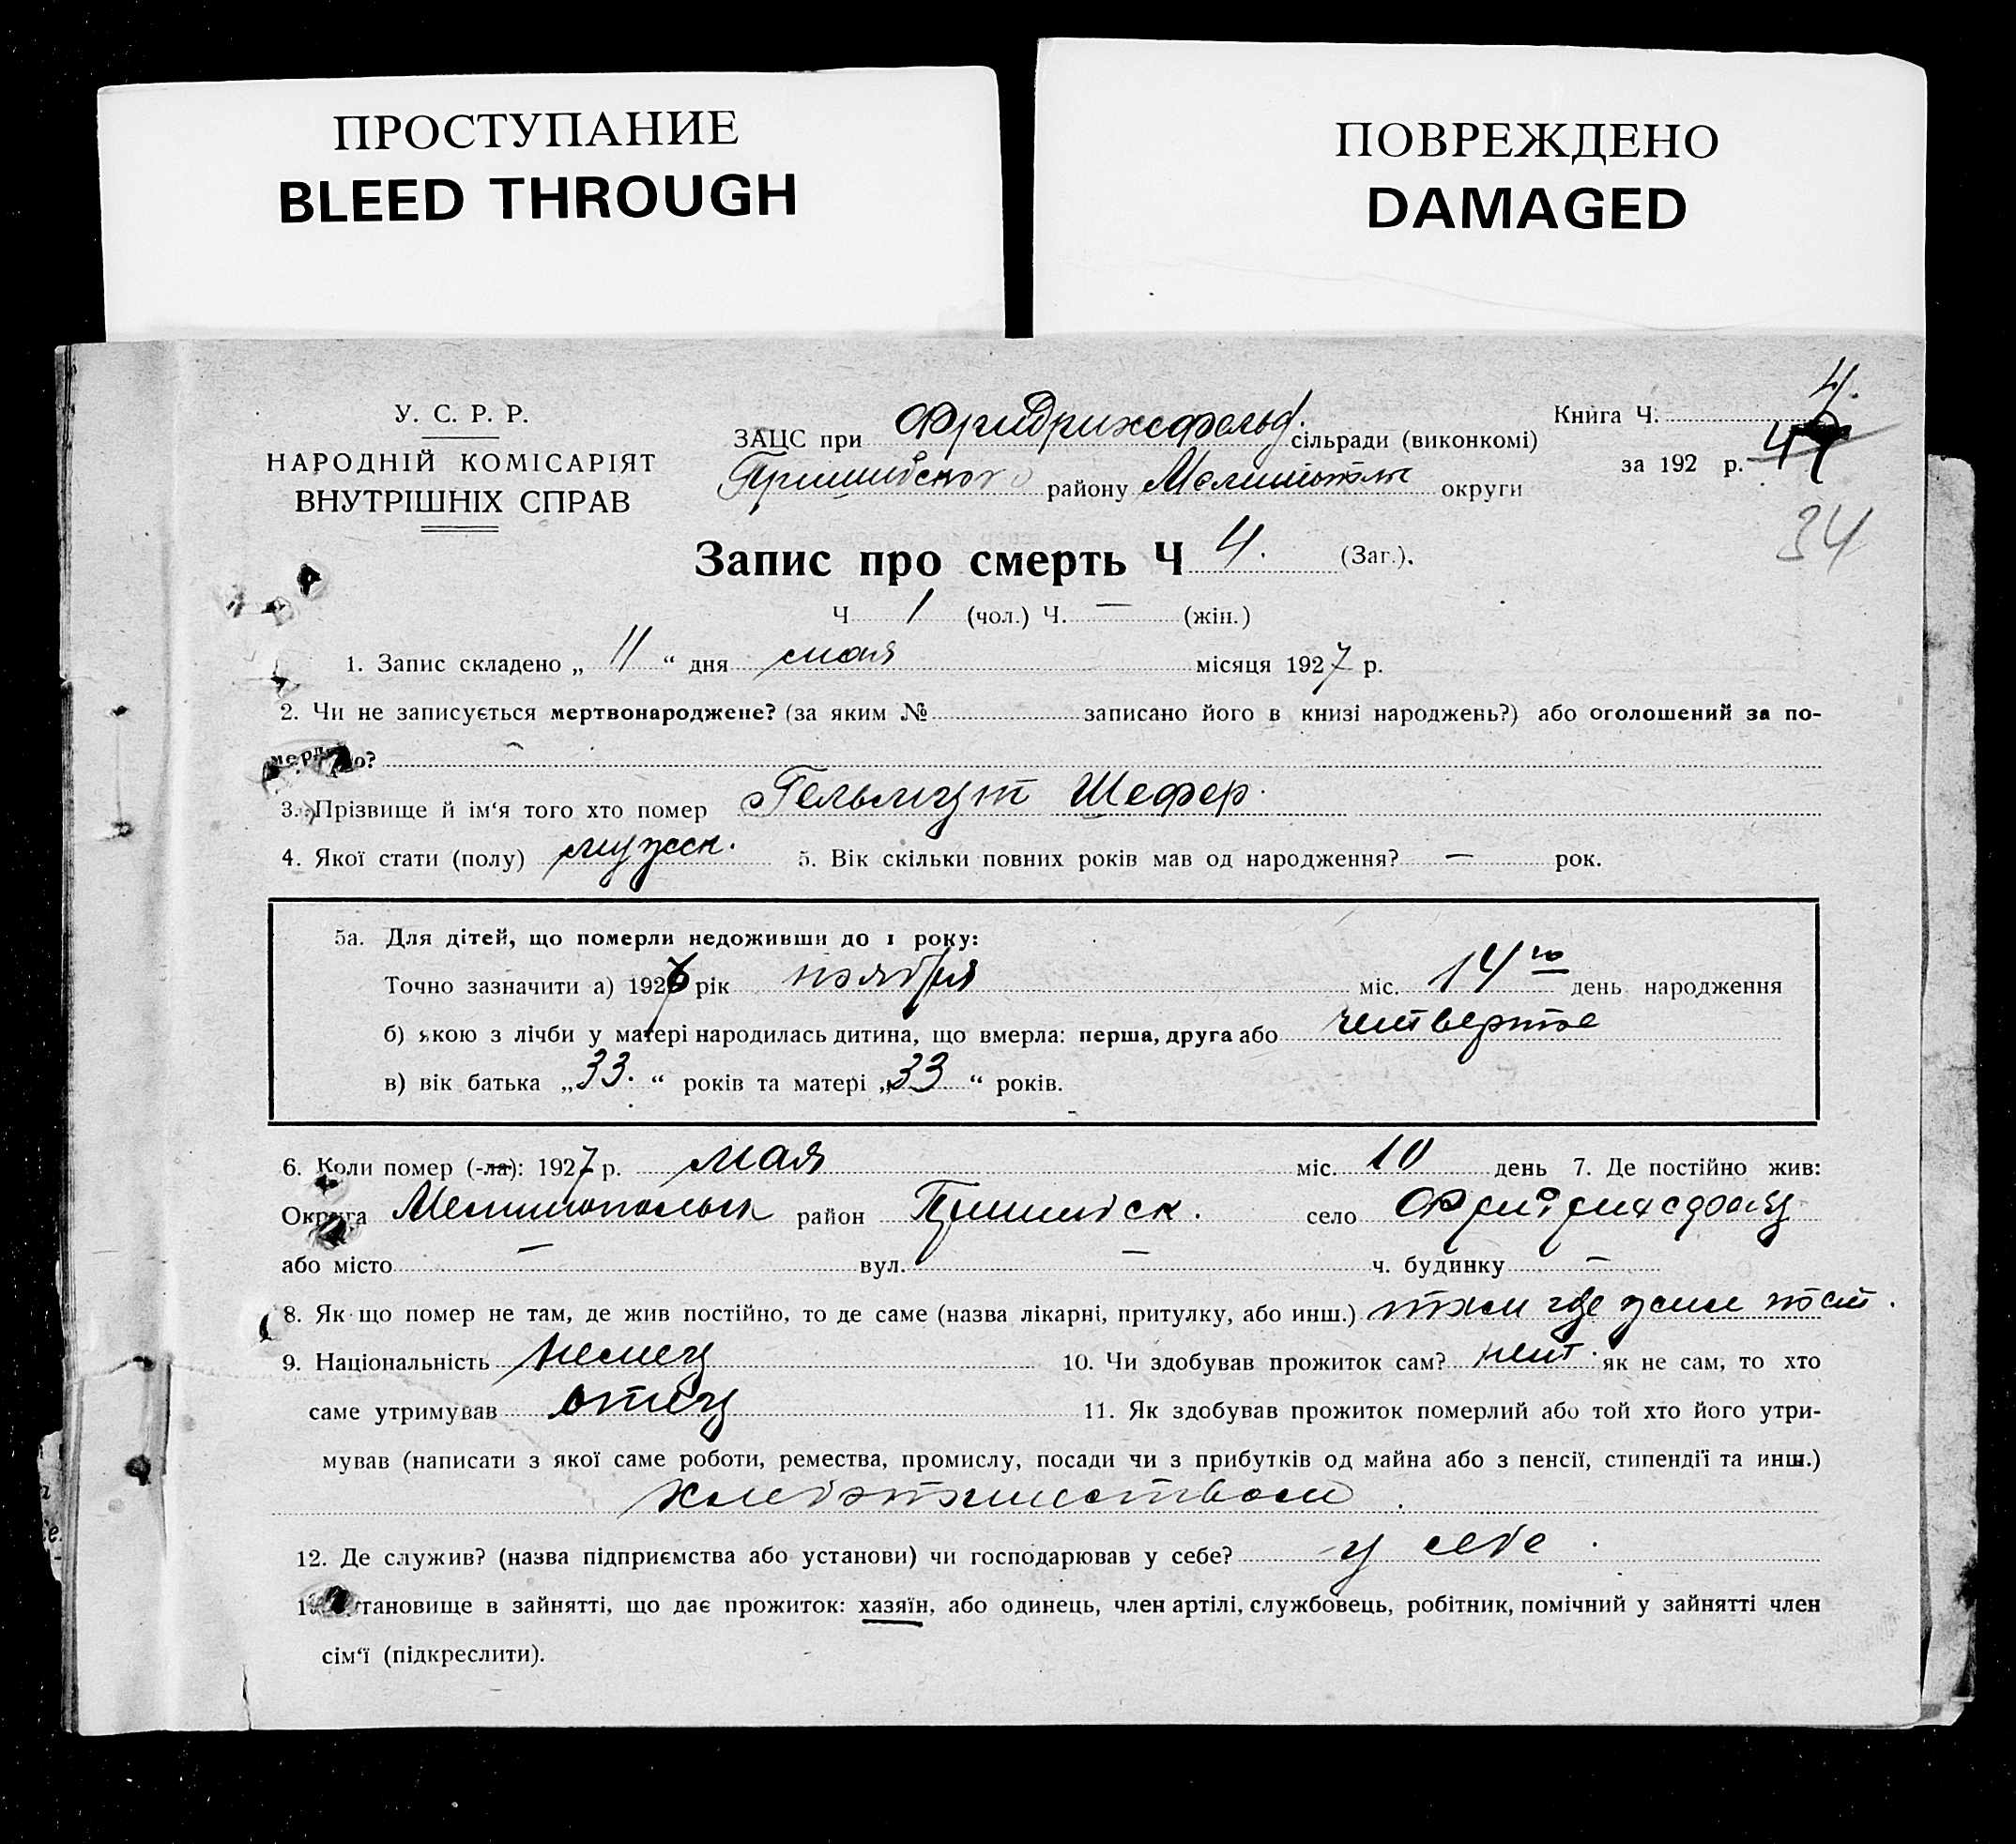 ПРОСТУПАНИЕ
BLEED THROUGH
ПОВРЕЖДЕНО
DAMAGED
У. С. Р. Р.
НАРОДНІЙ КОМІСАРІЯТ
ВНУТРІШНІХ СПРАВ
ЗАЦС при Фридрихсфельд. сільради (виконкомі)
Пришибского району Мелитопольс округи
Книга Ч. 4.
за 192 р.
34
Запис про смерть Ч 4. (Заг.).
Ч 1 (чол.) Ч. — (жін.)
1. Запис складено „ 11 “ дня мая місяця 1927 р.
2. Чи не записується мертвонароджене? (за яким № записано його в книзі народжень?) або оголошений за по-
мерлого?
3. Прізвище й ім‘я того хто помер Гельмут Шефер.
4. Якої стати (полу) мужск. 5. Вік скільки повних років мав од народження? — рок.
5а. Для дітей, що померли недоживши до 1 року:
Точно зазначити а) 1926 рік ноября міс. 14го день народження
б) якою з лічби у матері народилась дитина, що вмерла: перша, друга або четвертое
в) вік батька „33. “ років та матері „33 “ років.
6. Коли помер (-ла): 1927 р. мая міс. 10 день 7. Де постійно жив:
Округа Мелитопольск район Пришибск. село Фридрихсфельд
або місто — вул. — ч. будинку —
8. Як-що помер не там, де жив постійно, то де саме (назва лікарні, притулку, або инш.) там где жил пост.
9. Національність немец 10. Чи здобував прожиток сам? нет. як не сам, то хто
саме утримував отец 11. Як здобував прожиток померлий або той хто його утри-
мував (написати з якої саме роботи, ремества, промислу, посади чи з прибутків од майна або з пенсії, стипендії та инш.)
хлебопашеством.
12. Де служив? (назва підприємства або установи) чи господарював у себе? у себе.
13. Становище в зайнятті, що дає прожиток: хазяїн, або одинець, член артілі, службовець, робітник, помічний у зайнятті член
сім‘ї (підкреслити).